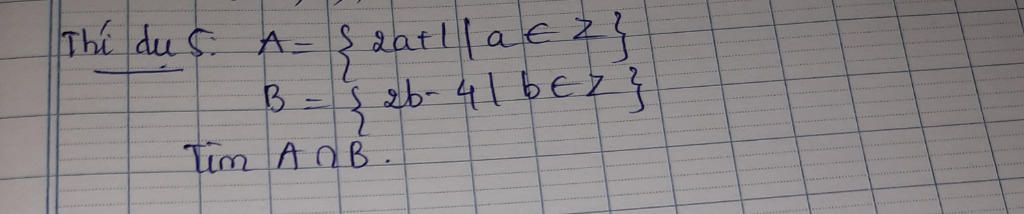 Thí dụ 5: A = { 2a+1 | a ∈ Z }
B = { 2b - 4 | b ∈ Z }
Tìm A ∩ B.